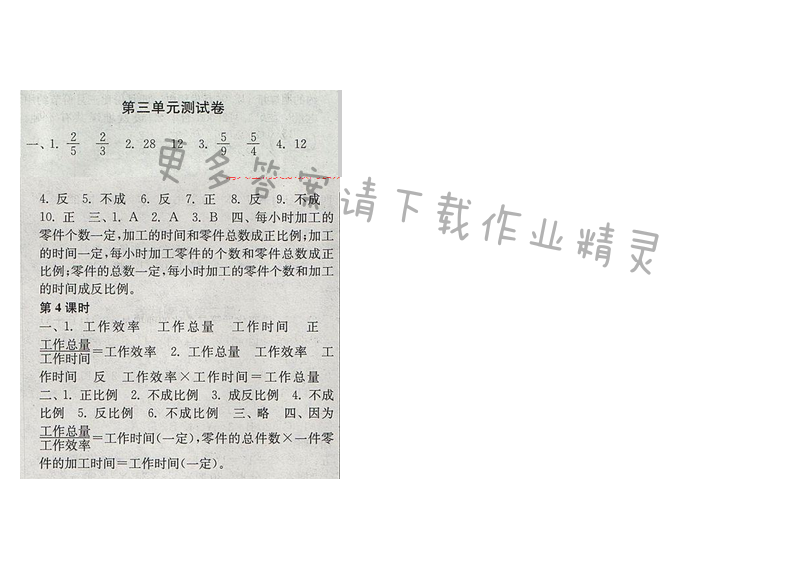 第三单元测试卷
一、1. 2/5 2/3 2. 28 12 3. 5/9 5/4 4. 12
4. 反 5. 不成 6. 反 7. 正 8. 反 9. 不成
10. 正 三、1. A 2. A 3. B 四、每小时加工的
零件个数一定,加工的时间和零件总数成正比例;加工
的时间一定,每小时加工零件的个数和零件总数成正
比例;零件的总数一定,每小时加工的零件个数和加工
的时间成反比例。
第 4 课时
一、1. 工作效率 工作总量 工作时间 正
工作总量/工作时间=工作效率 2. 工作总量 工作效率 工
作时间 反 工作效率×工作时间=工作总量
二、1. 正比例 2. 不成比例 3. 成反比例 4. 不成
比例 5. 反比例 6. 不成比例 三、略 四、因为
工作总量/工作效率=工作时间(一定),零件的总件数×一件零
件的加工时间=工作时间(一定)。
更多答案请下载作业精灵